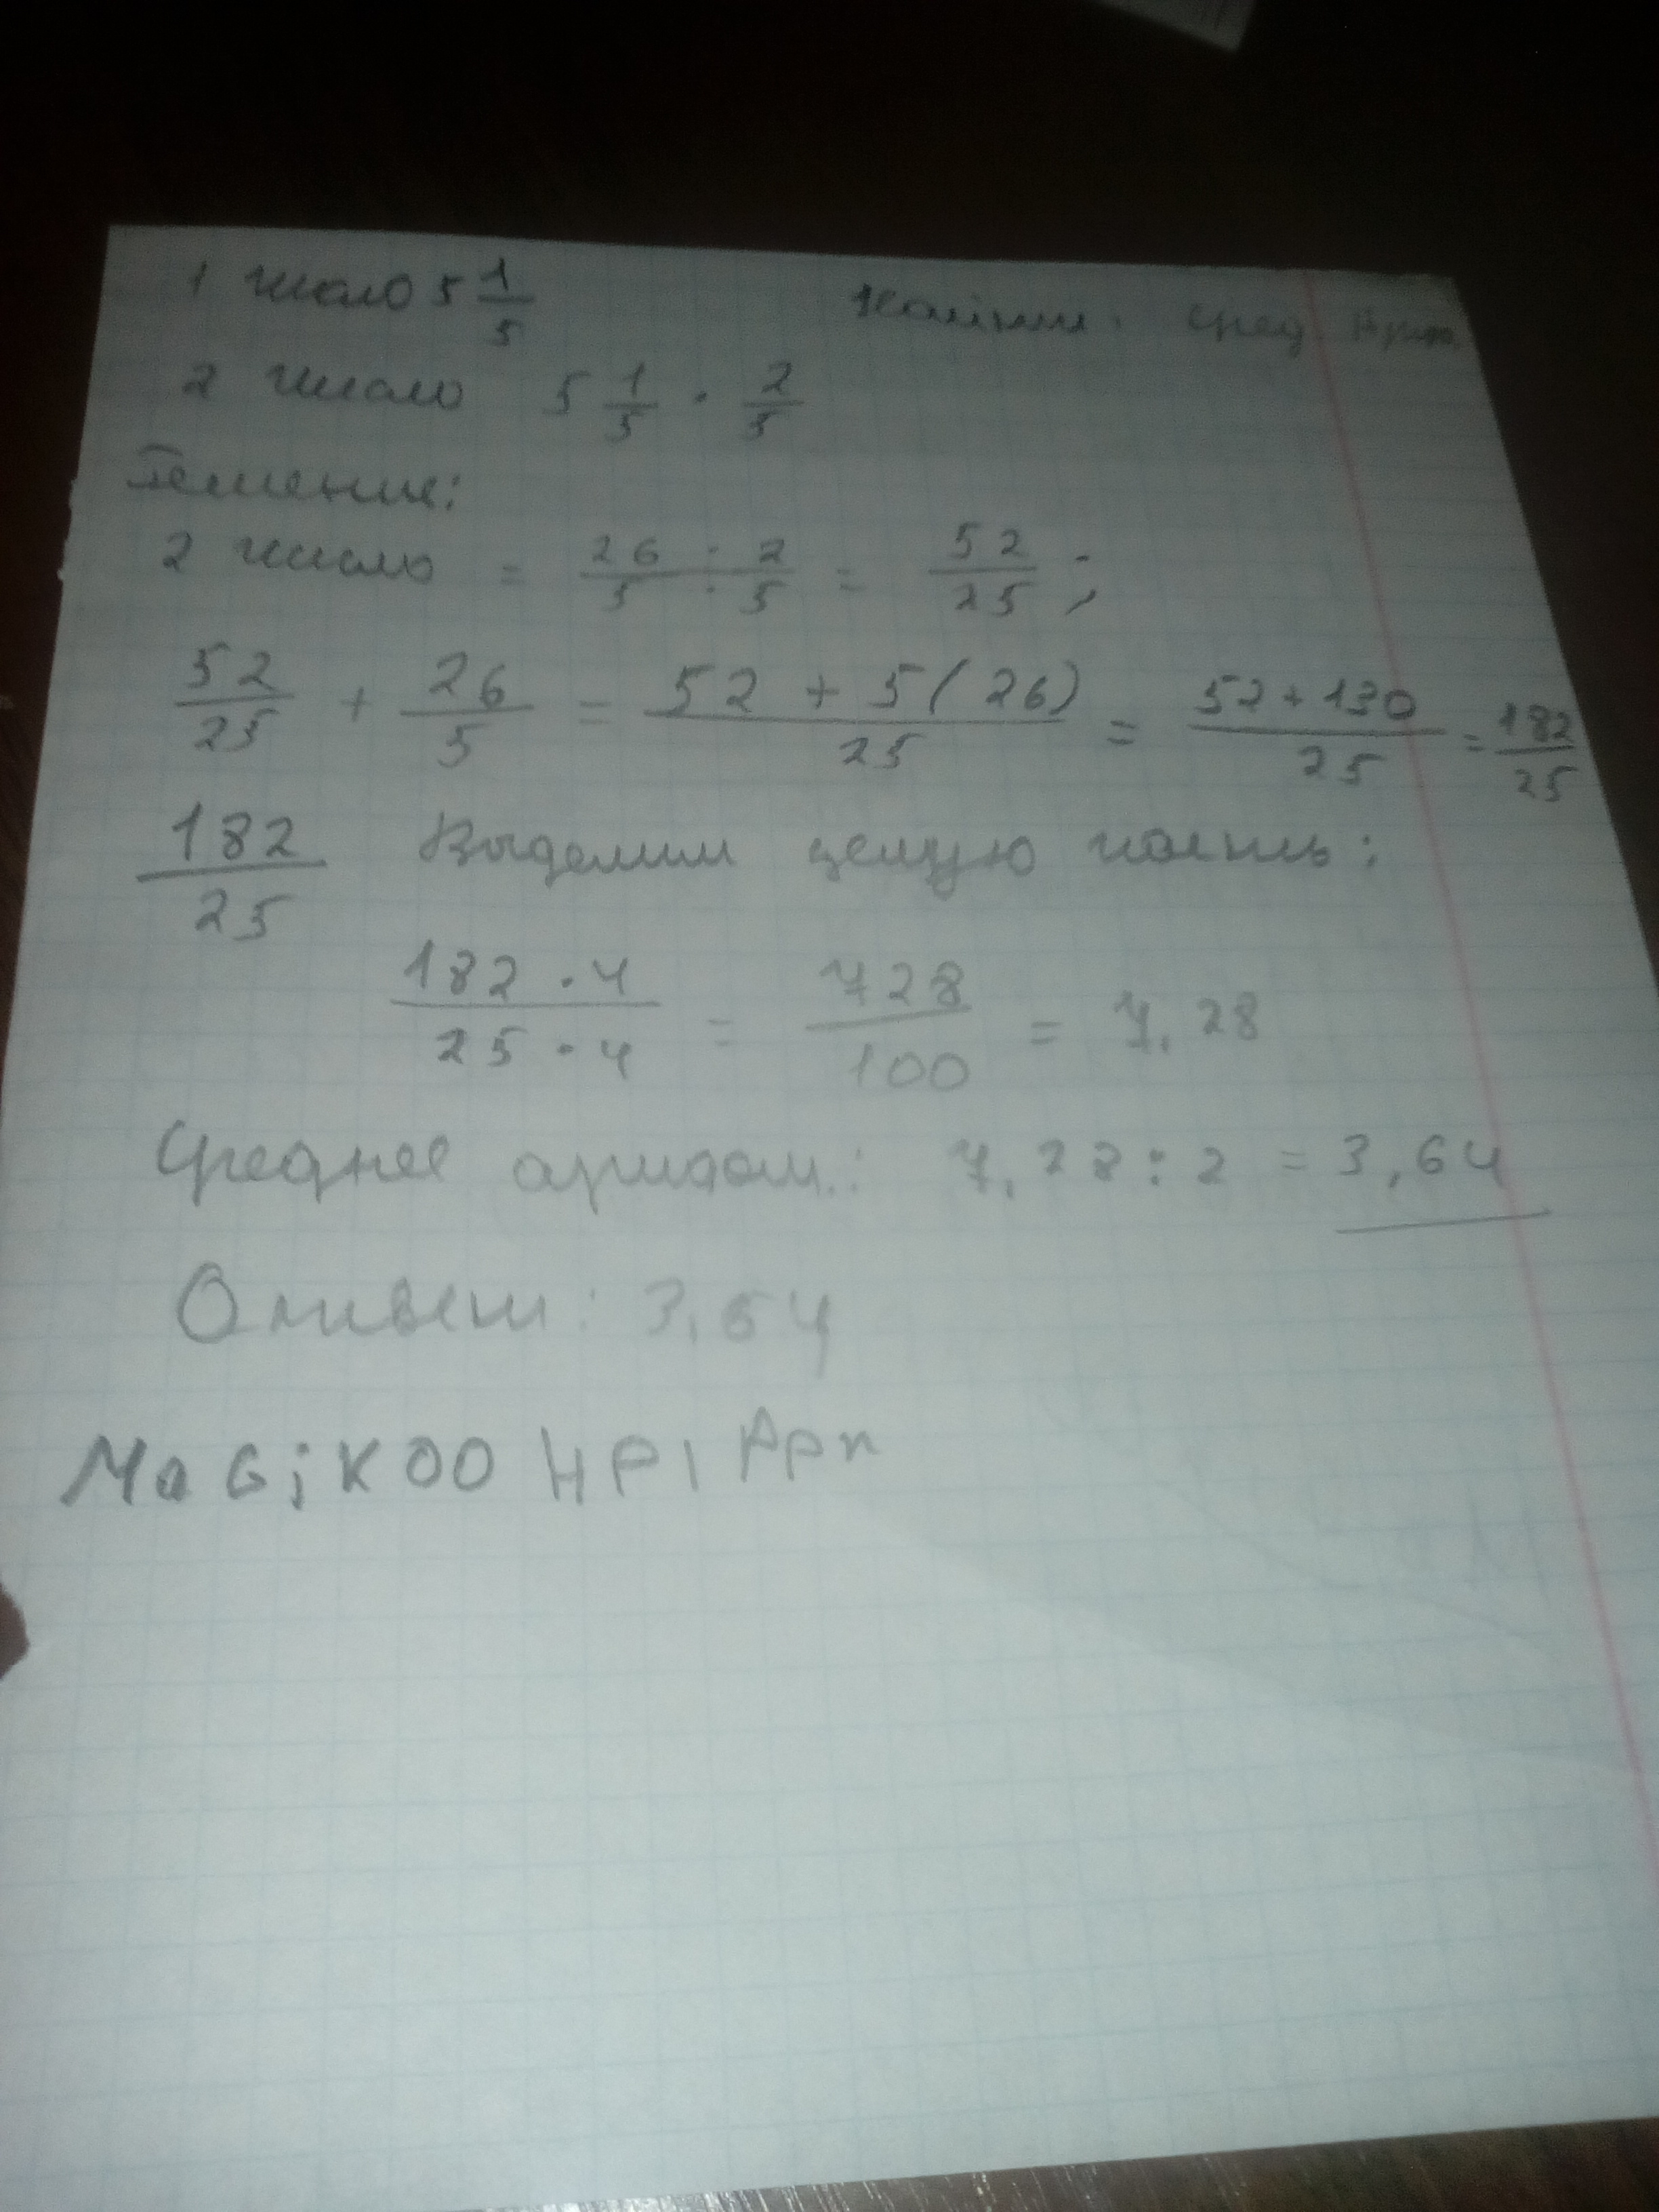 1 число 5 1/5 Найти: сред. Арифм.
2 число 5 1/5 · 2/5
Решение:
2 число = 26/5 · 2/5 = 52/25 ;
52/25 + 26/5 = (52 + 5(26))/25 = (52+130)/25 = 182/25
182/25 Выделим целую часть:
(182 · 4)/(25 · 4) = 728/100 = 7,28
Среднее арифм.: 7,28 : 2 = 3,64
Ответ: 3,64